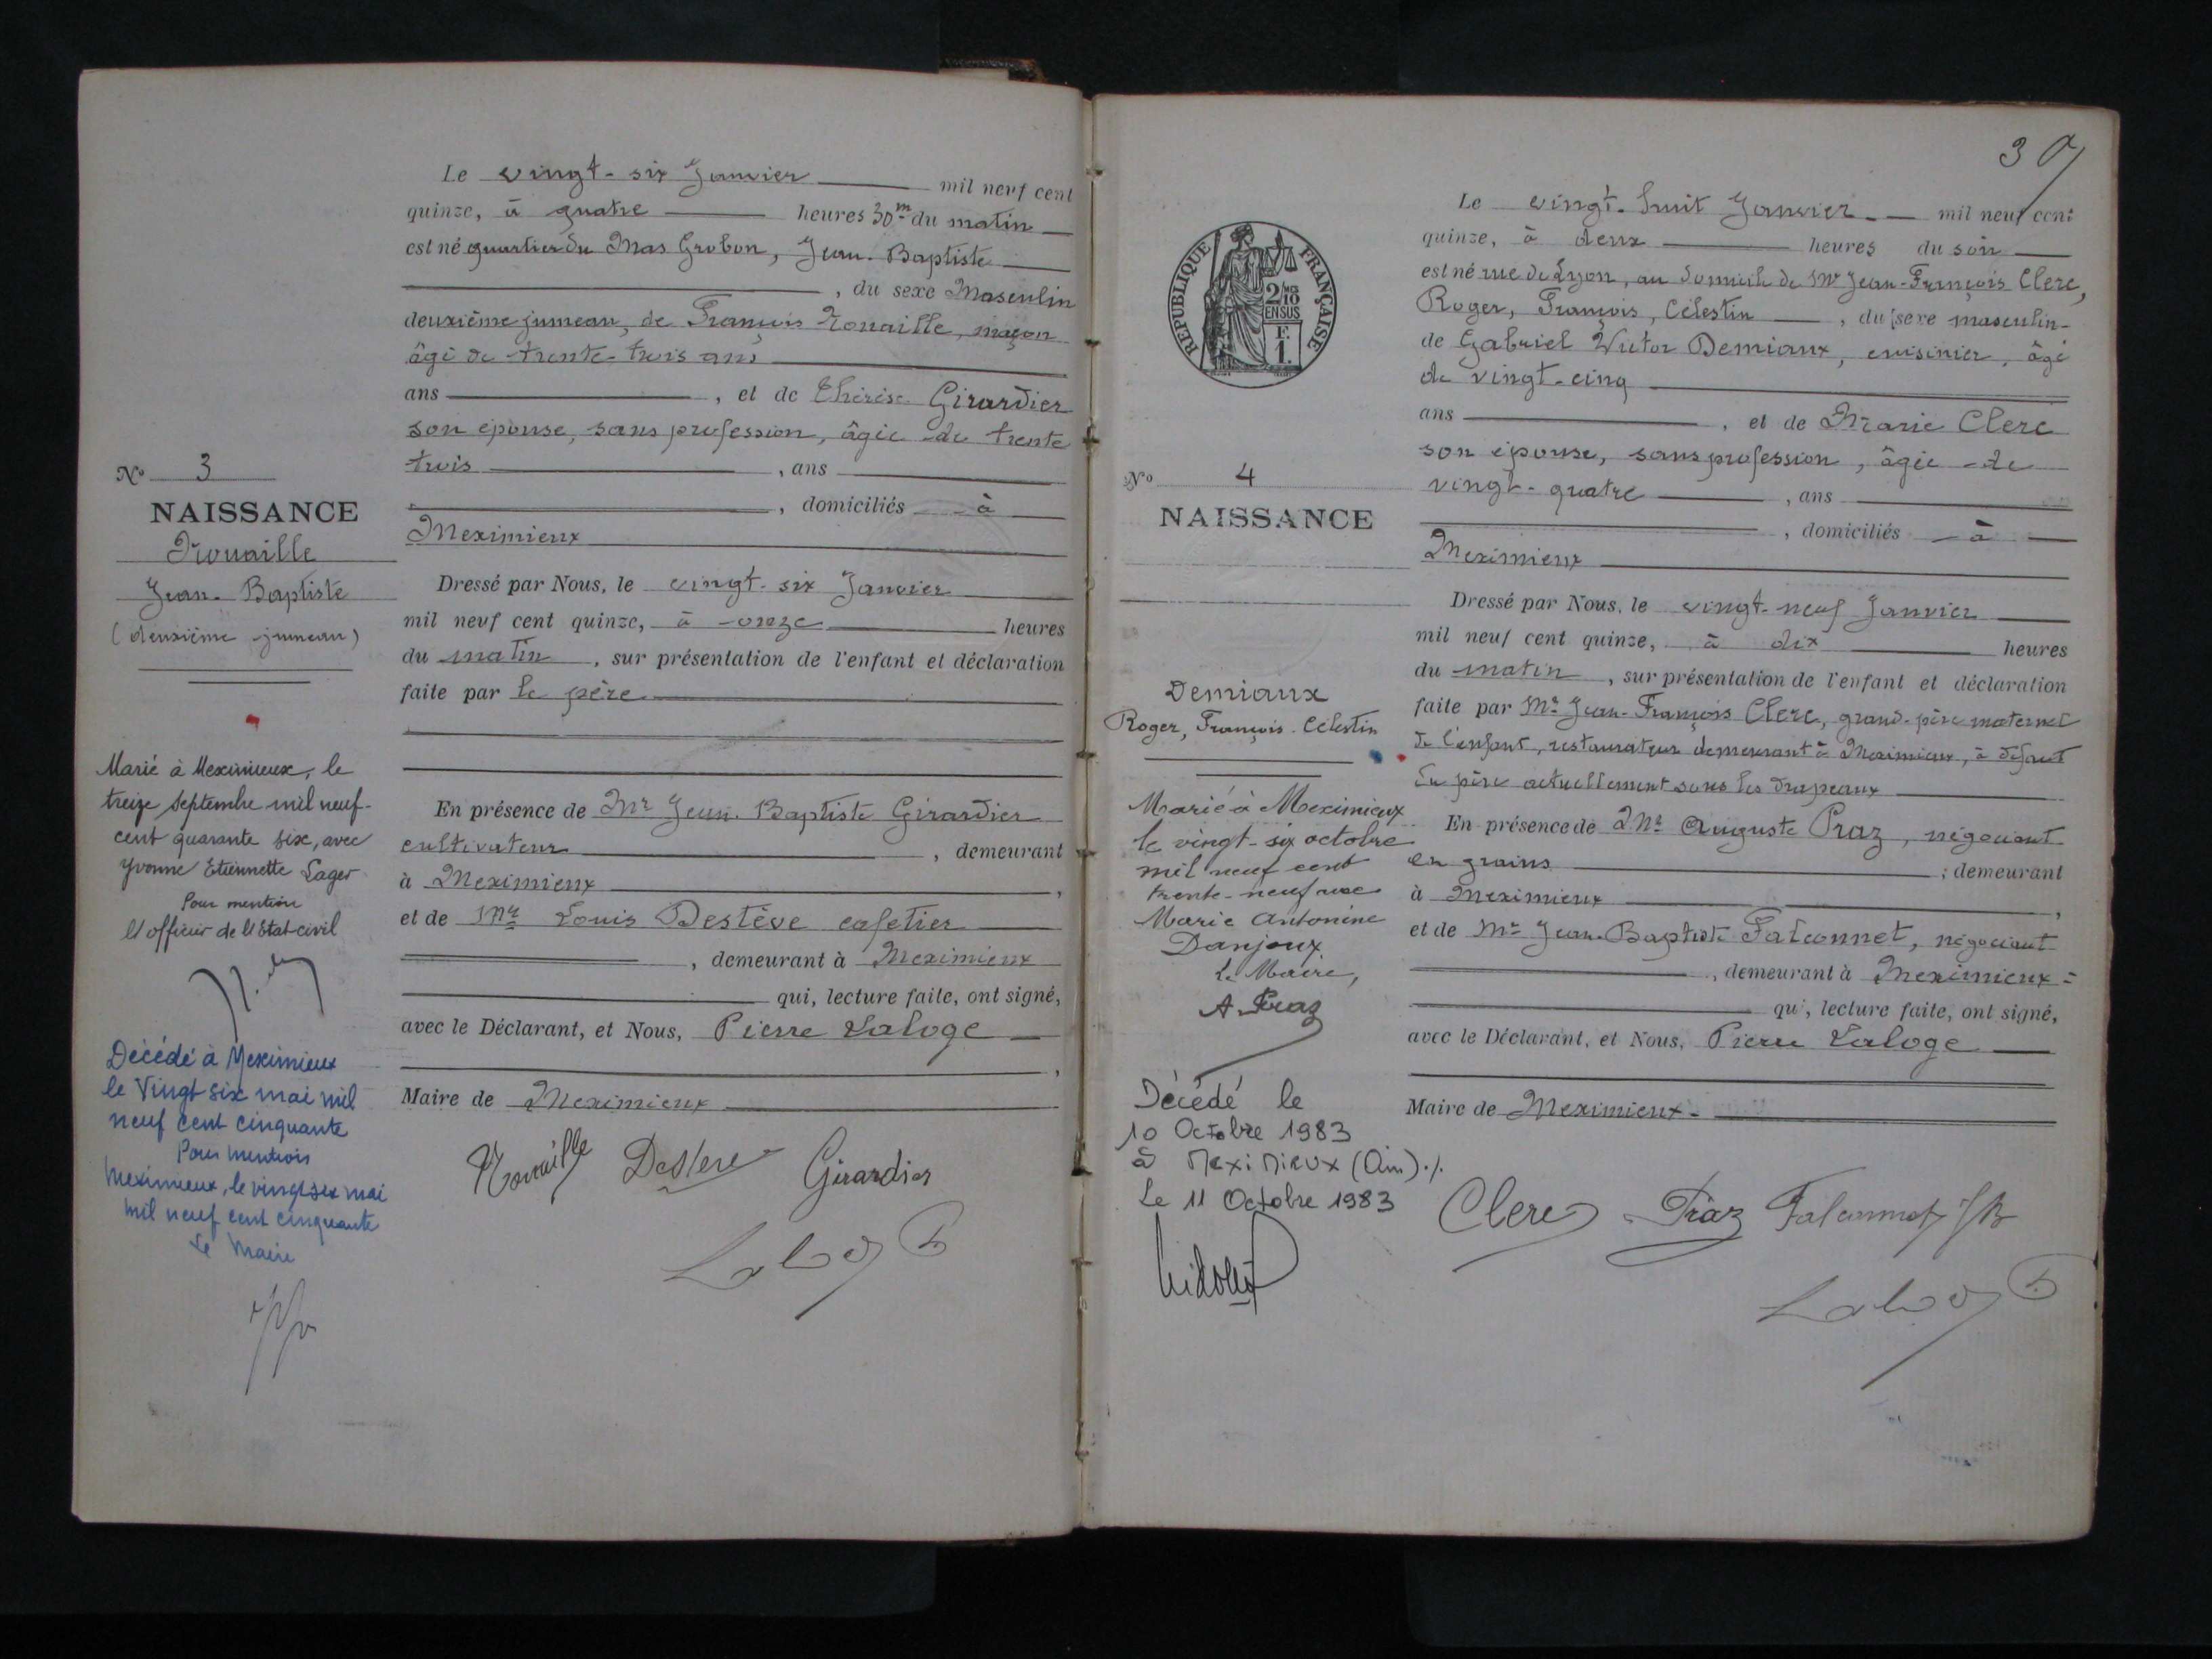 Le vingt-six Janvier mil neuf cent
quinze, à quatre heures 30m du matin
est né quartier du Mas Grobon, Jean-Baptiste
, du sexe Masculin
deuxième jumeau, de François Trouaille, maçon
âgé de trente-trois ans
ans , et de Thérèse Girardier
son épouse, sans profession, âgée de trente
trois , ans
, domiciliés à
Meximieux
Dressé par Nous, le vingt-six Janvier
mil neuf cent quinze, à onze heures
du matin , sur présentation de l'enfant et déclaration
faite par le père
En présence de Mr Jean-Baptiste Girardier
cultivateur , demeurant
à Meximieux ,
et de Mr Louis Destève cafetier
, demeurant à Meximieux
qui, lecture faite, ont signé,
avec le Déclarant, et Nous, Pierre Laloge
,
Maire de Meximieux
Trouaille Destève Girardier
Laloge P
No 3
NAISSANCE
Trouaille
Jean-Baptiste
(deuxième jumeau)
Marié à Meximieux, le
treize Septembre mil neuf-
cent quarante six, avec
Yvonne Etiennette Lager
Pour mention
L'officier de l'Etat-civil
Décédé à Meximieux
le Vingt six mai mil
neuf cent cinquante
Pour mention
Meximieux, le vingt six mai
mil neuf cent cinquante
Le Maire
30
RÉPUBLIQUE FRANÇAISE
2/10
EN SUS
F.
1.
Le vingt-huit Janvier mil neuf cent
quinze, à deux heures du soir
est né rue de Lyon, au domicile de Mr Jean-François Clerc,
Roger, François, Célestin , du sexe masculin
de Gabriel Victor Demiaux, cuisinier, âgé
de vingt-cinq
ans , et de Marie Clerc
son épouse, sans profession, âgée de
vingt-quatre , ans
, domiciliés à
Meximieux
Dressé par Nous, le vingt-neuf Janvier
mil neuf cent quinze, à dix heures
du matin , sur présentation de l'enfant et déclaration
faite par Mr Jean-François Clerc, grand-père maternel
de l'enfant, restaurateur demeurant à Meximieux, à défaut
du père actuellement sous les drapeaux
En présence de Mr Auguste Praz, négociant
en grains ; demeurant
à Meximieux ,
et de Mr Jean-Baptiste Falconnet, négociant
, demeurant à Meximieux
qui, lecture faite, ont signé,
avec le Déclarant, et Nous, Pierre Laloge
Maire de Meximieux
Clerc Praz Falconnet JB
Laloge P
No 4
NAISSANCE
Demiaux
Roger, François-Célestin
Marié à Meximieux
le vingt-six octobre
mil neuf cent
trente-neuf avec
Marie Antonine
Danjoux
Le Maire,
A. Praz
Décédé le
10 Octobre 1983
à Meximieux (Ain)./.
Le 11 Octobre 1983